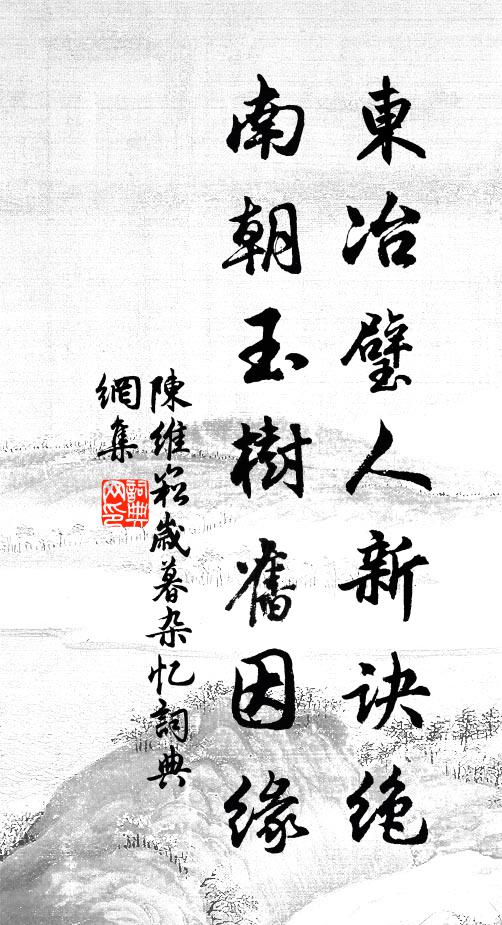 東冶璧人新诀绝
南朝玉樹舊因緣
陳維崧歲暮杂忆詞典
網集
詞典网印